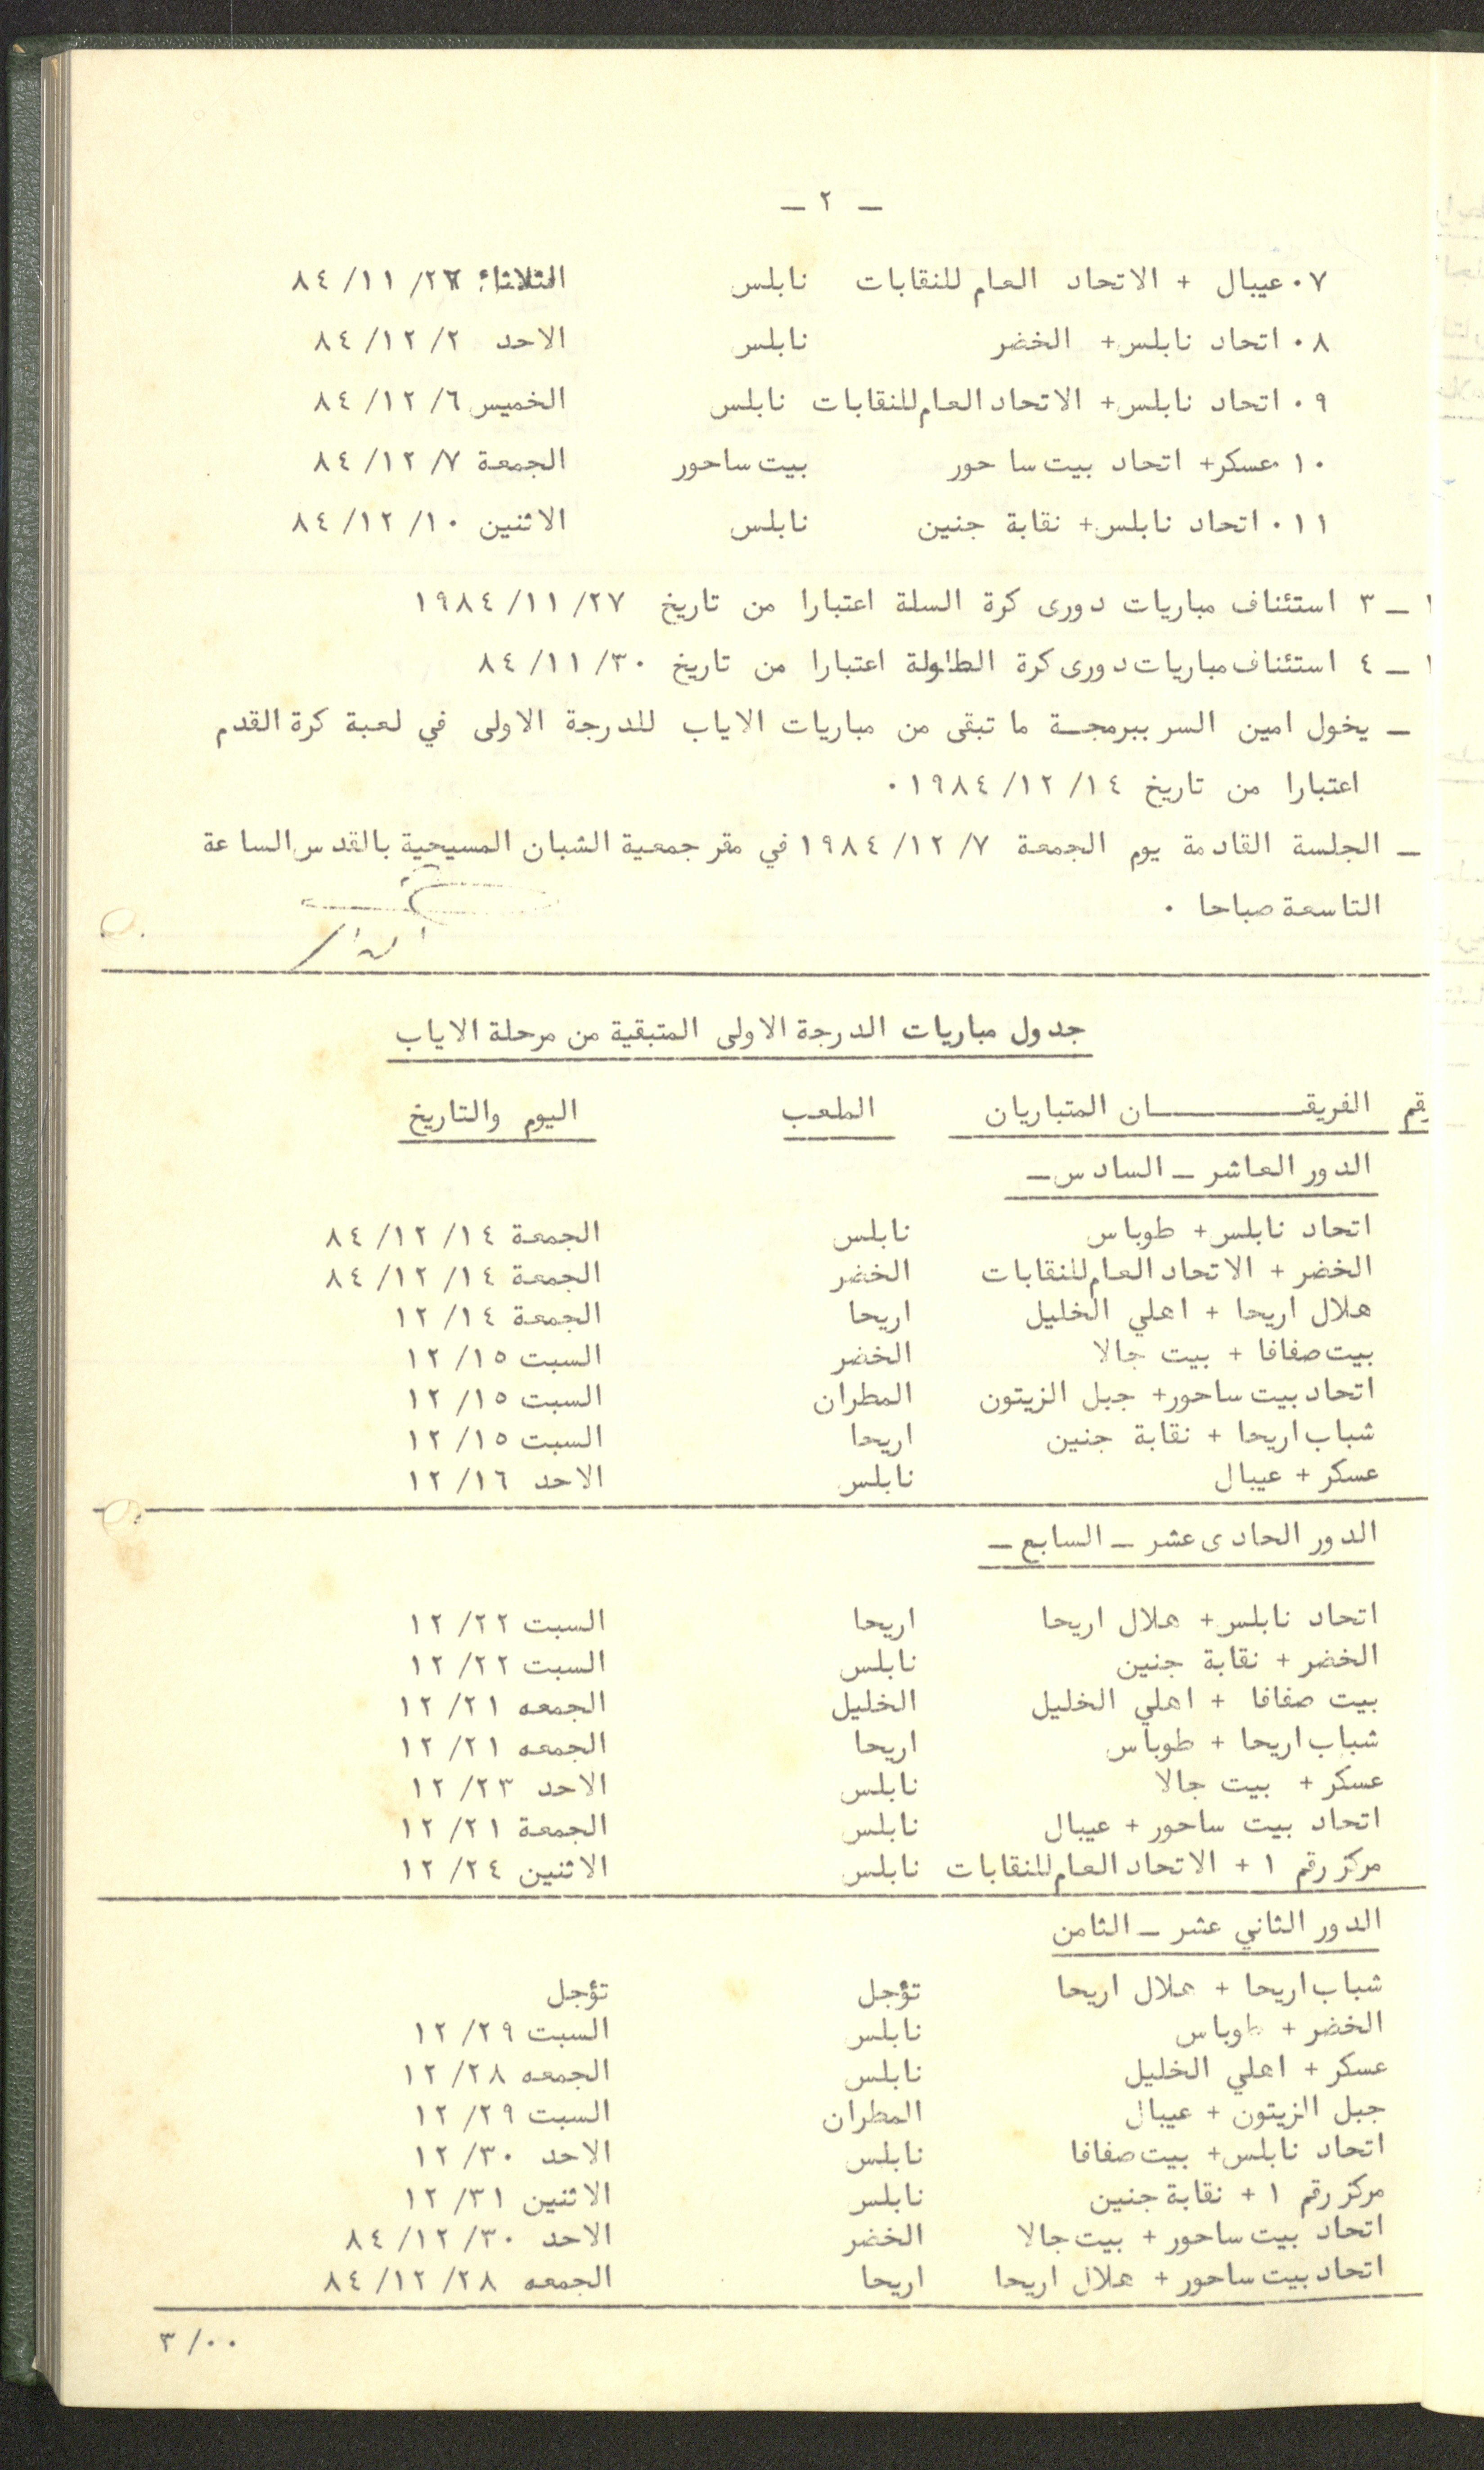 — ٢ —
٠٧ عيبال + الاتحاد العام للنقابات نابلس الثلاثاء ٨٤/١١/٢٧
٠٨ اتحاد نابلس+ الخضر نابلس الاحد ٨٤/١٢/٢
٠٩ اتحاد نابلس+ الاتحاد العام للنقابات نابلس الخميس ٨٤/١٢/٦
٠١٠ عسكر+ اتحاد بيت ساحور بيت ساحور الجمعة ٨٤/١٢/٧
٠١١ اتحاد نابلس+ نقابة جنين نابلس الاثنين ٨٤/١٢/١٠
١ — ٣ استئناف مباريات دورى كرة السلة اعتبارا من تاريخ ١٩٨٤/١١/٢٧
١ — ٤ استئناف مباريات دورى كرة الطاولة اعتبارا من تاريخ ٨٤/١١/٣٠
— يخول امين السر ببرمجة ما تبقى من مباريات الاياب للدرجة الاولى في لعبة كرة القدم
اعتبارا من تاريخ ١٩٨٤/١٢/١٤ ٠
— الجلسة القادمة يوم الجمعة ١٩٨٤/١٢/٧ في مقر جمعية الشبان المسيحية بالقدس الساعة
التاسعة صباحا ٠
جدول مباريات الدرجة الاولى المتبقية من مرحلة الاياب
الفريقــــــــان المتباريان الملعب اليوم والتاريخ
الدور العاشر — السادس —
اتحاد نابلس+ طوباس نابلس الجمعة ٨٤/١٢/١٤
الخضر + الاتحاد العام للنقابات الخضر الجمعة ٨٤/١٢/١٤
هلال اريحا + اهلي الخليل اريحا الجمعة ١٢/١٤
بيت صفافا + بيت جالا الخضر السبت ١٢/١٥
اتحاد بيت ساحور+ جبل الزيتون المطران السبت ١٢/١٥
شباب اريحا + نقابة جنين اريحا السبت ١٢/١٥
عسكر + عيبال نابلس الاحد ١٢/١٦
الدور الحادى عشر — السابع —
اتحاد نابلس+ هلال اريحا اريحا السبت ١٢/٢٢
الخضر + نقابة جنين نابلس السبت ١٢/٢٢
بيت صفافا + اهلي الخليل الخليل الجمعه ١٢/٢١
شباب اريحا + طوباس اريحا الجمعه ١٢/٢١
عسكر + بيت جالا نابلس الاحد ١٢/٢٣
اتحاد بيت ساحور + عيبال نابلس الجمعة ١٢/٢١
مركز رقم ١ + الاتحاد العام للنقابات نابلس الاثنين ١٢/٢٤
الدور الثاني عشر — الثامن
شباب اريحا + هلال اريحا تؤجل تؤجل
الخضر + طوباس نابلس السبت ١٢/٢٩
عسكر + اهلي الخليل نابلس الجمعه ١٢/٢٨
جبل الزيتون + عيبال المطران السبت ١٢/٢٩
اتحاد نابلس+ بيت صفافا نابلس الاحد ١٢/٣٠
مركز رقم ١ + نقابة جنين نابلس الاثنين ١٢/٣١
اتحاد بيت ساحور + بيت جالا الخضر الاحد ٨٤/١٢/٣٠
اتحاد بيت ساحور + هلال اريحا اريحا الجمعه ٨٤/١٢/٢٨
٣/٠٠